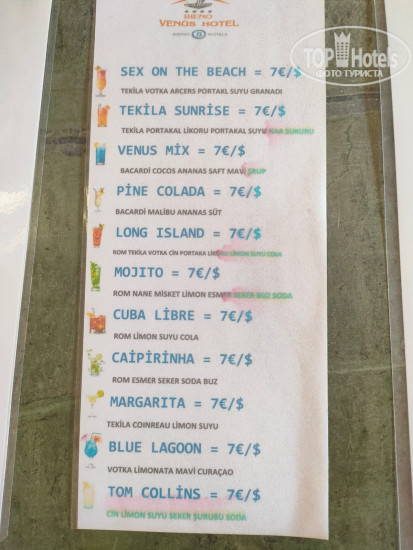 BIENO
VENÜS HOTEL
TOP Hotels
ФОТО ТУРИСТА
SEX ON THE BEACH = 7€/$
TEKİLA VOTKA ARCERS PORTAKL SUYU GRANADI
TEKİLA SUNRİSE = 7€/$
TEKİLA PORTAKAL LİKORU PORTAKAL SUYU NAR SURUBU
VENUS MİX = 7€/$
BACARDİ COCOS ANANAS SAFT MAVİ ŞRUP
PİNE COLADA = 7€/$
BACARDİ MALİBU ANANAS SÜT
LONG ISLAND = 7€/$
ROM TEKİLA VOTKA CİN PORTAKA LİKORU LİMON SUYU COLA
MOJİTO = 7€/$
ROM NANE MİSKET LİMON ESMER SEKER BUZ SODA
CUBA LİBRE = 7€/$
ROM LİMON SUYU COLA
CAİPİRİNHA = 7€/$
ROM ESMER SEKER SODA BUZ
MARGARITA = 7€/$
TEKİLA COINREAU LİMON SUYU
BLUE LAGOON = 7€/$
VOTKA LİMONATA MAVİ CURAÇAO
TOM COLLİNS = 7€/$
CİN LİMON SUYU SEKER ŞURUBU SODA